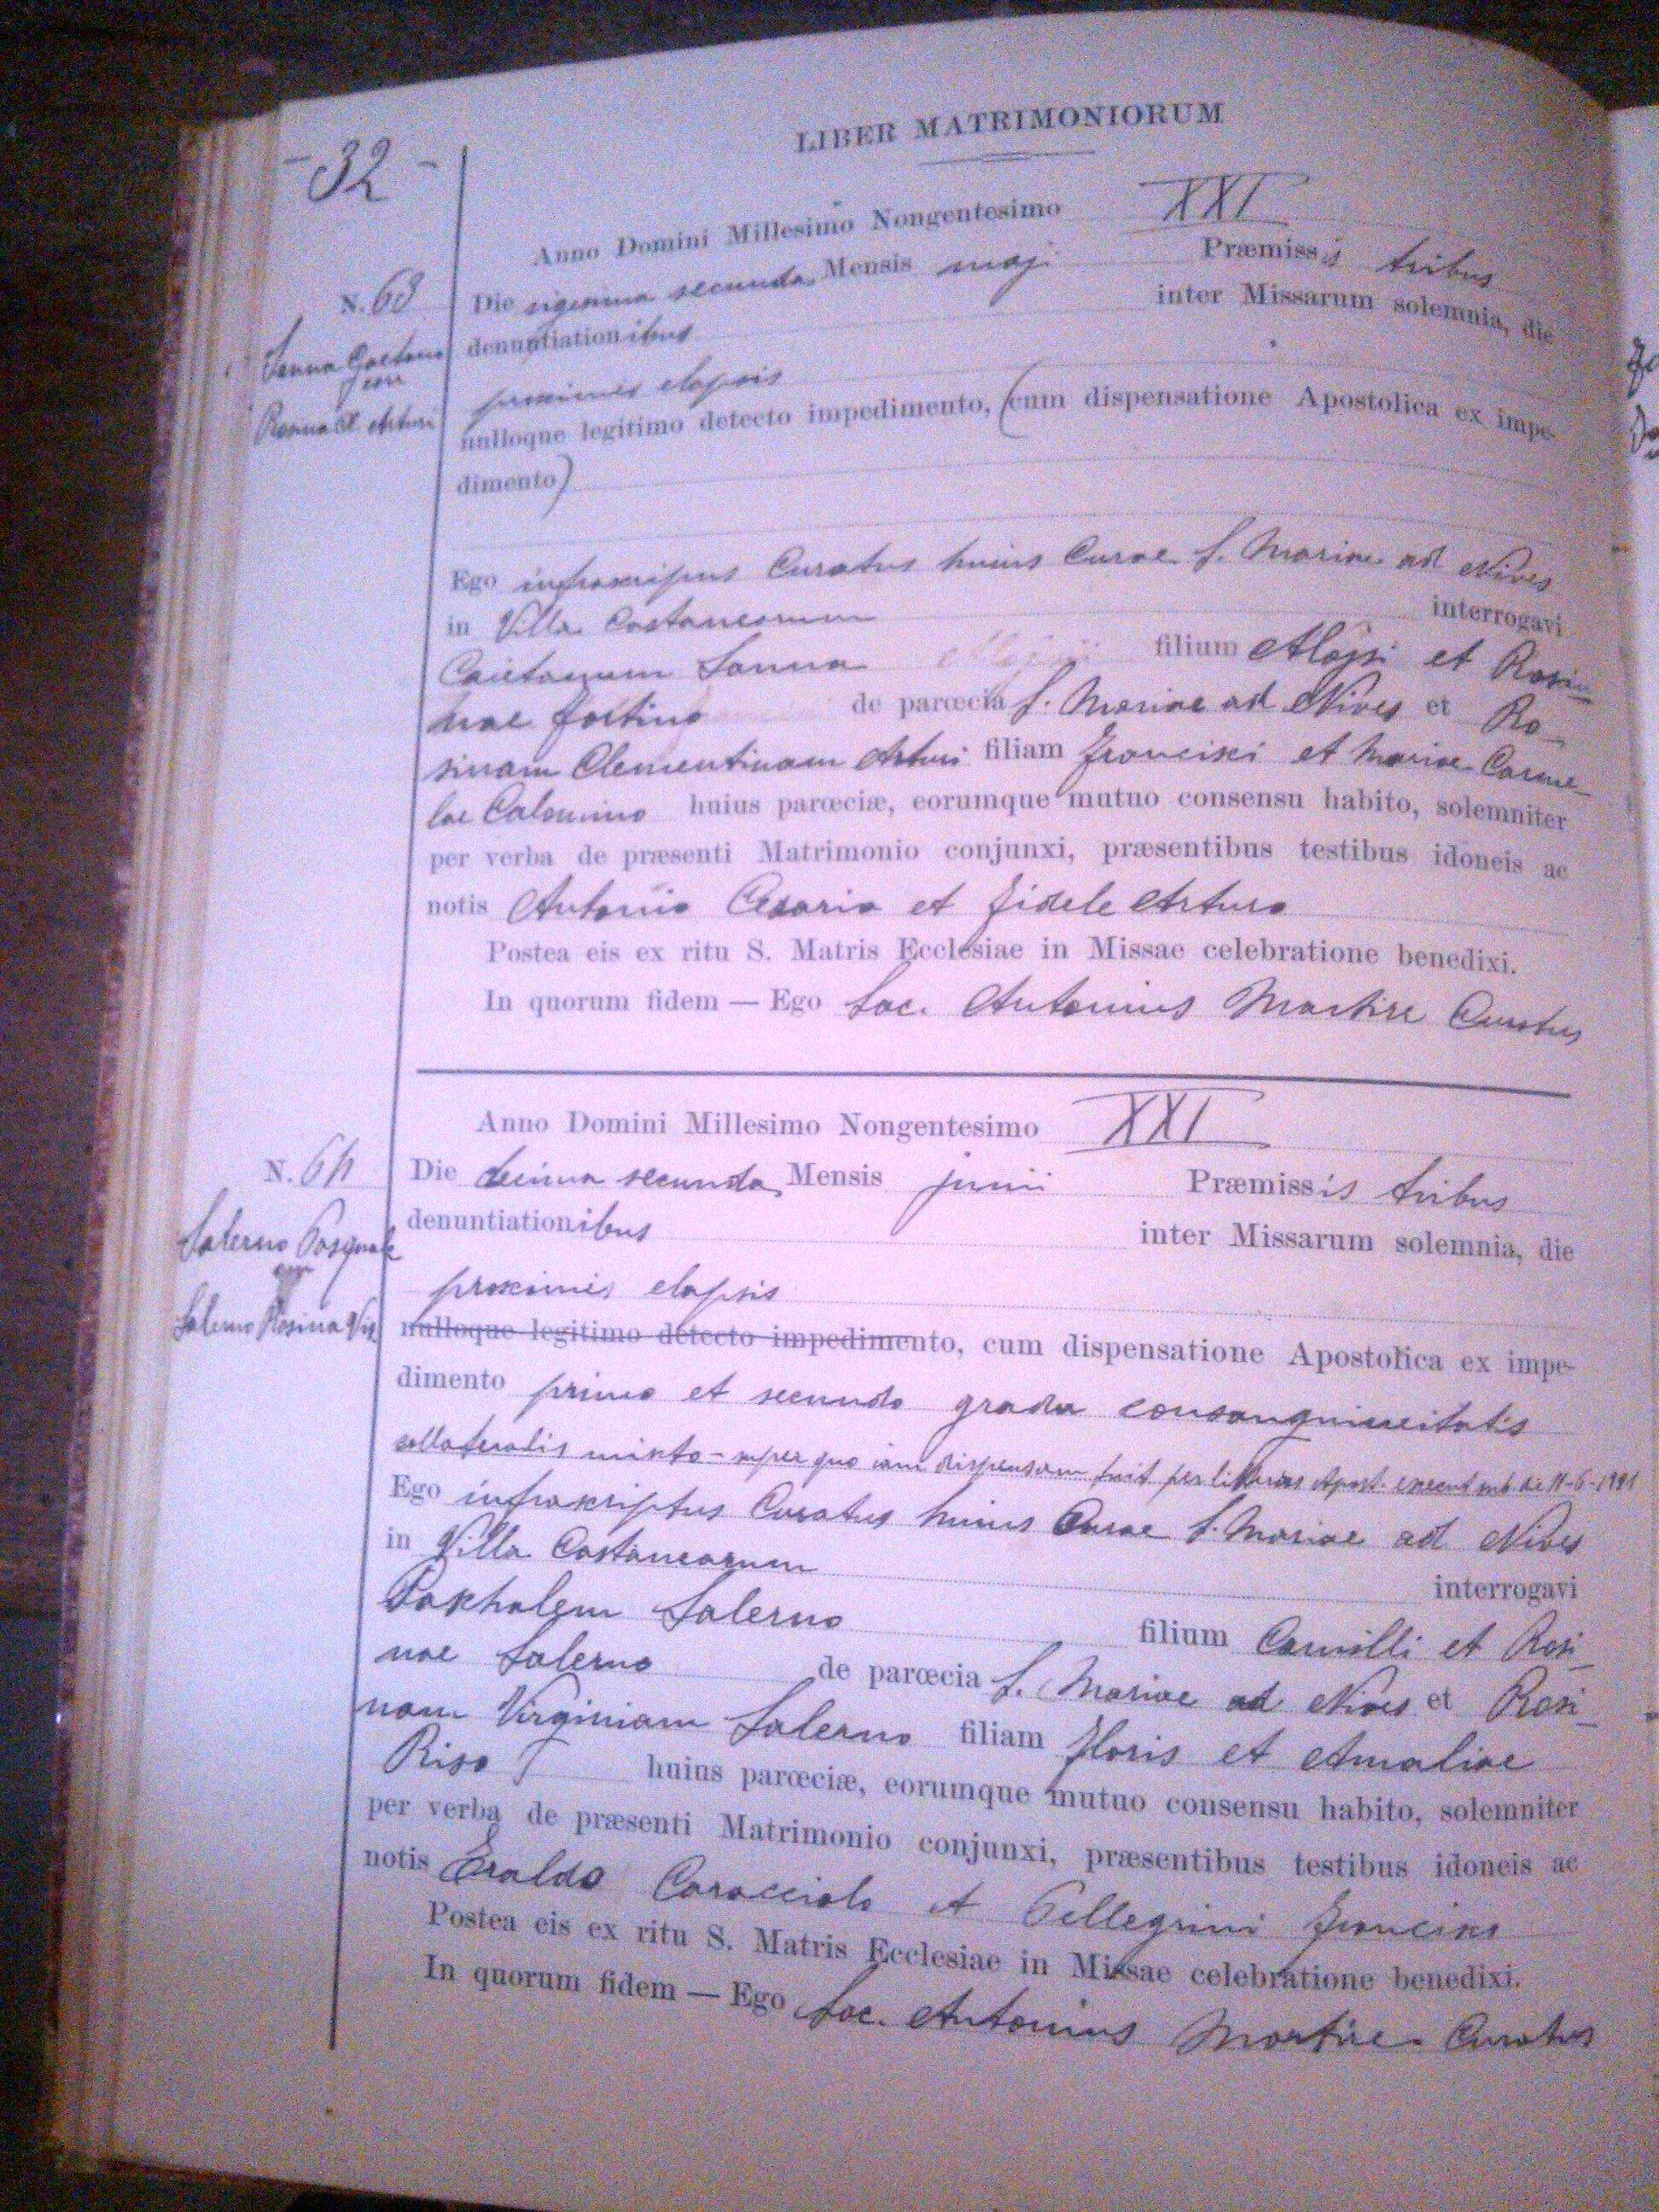 - 32 -
LIBER MATRIMONIORUM
Anno Domini Millesimo Nongentesimo XXI
N. 63 Die vigesima secunda Mensis maji Præmissis tribus
denuntiationibus inter Missarum solemnia, die
Sanna Gaetano
proximis elapsis
nulloque legitimo detecto impedimento, (cum dispensatione Apostolica ex impe-
Rosina Cl. Arturi
dimento)
Ego infrascriptus Curatus huius Curae S. Mariae ad Nives
in Villa Castanearum interrogavi
Caietanum Sanna filium Aloysi et Rosi-
nae Fortino de parœcia S. Mariae ad Nives et Ro-
sinam Clementinam Arturi filiam Francisci et Mariae Carme-
lae huius parœciæ, eorumque mutuo consensu habito, solemniter
per verba de præsenti Matrimonio conjunxi, præsentibus testibus idoneis ac
notis Antonio Cesario et Fidele Arturo
Postea eis ex ritu S. Matris Ecclesiae in Missae celebratione benedixi.
In quorum fidem — Ego Sac. Antonius Martire Curatus
Anno Domini Millesimo Nongentesimo XXI
N. 64 Die decima secunda Mensis junii Præmissis tribus
denuntiationibus inter Missarum solemnia, die
Salerno Pasquale
proximis elapsis
Salerno Rosina Virg.
nulloque legitimo detecto impedimento, cum dispensatione Apostolica ex impe-
dimento primo et secundo gradu consanguineitatis
collateralis mixto - super quo iam dispensam fuit per litteras Apost. execut. sub die 11-6-1921
Ego infrascriptus Curatus huius Curae S. Mariae ad Nives
in Villa Castanearum interrogavi
Paschalem Salerno filium Camilli et Rosi-
nae Salerno de parœcia S. Mariae ad Nives et Rosi-
nam Virginiam Salerno filiam Floris et Amaliae
Riso huius parœciæ, eorumque mutuo consensu habito, solemniter
per verba de præsenti Matrimonio conjunxi, præsentibus testibus idoneis ac
notis Eraldo Caracciolo et Pellegrini Francisco
Postea eis ex ritu S. Matris Ecclesiae in Missae celebratione benedixi.
In quorum fidem — Ego Sac. Antonius Martire Curatus